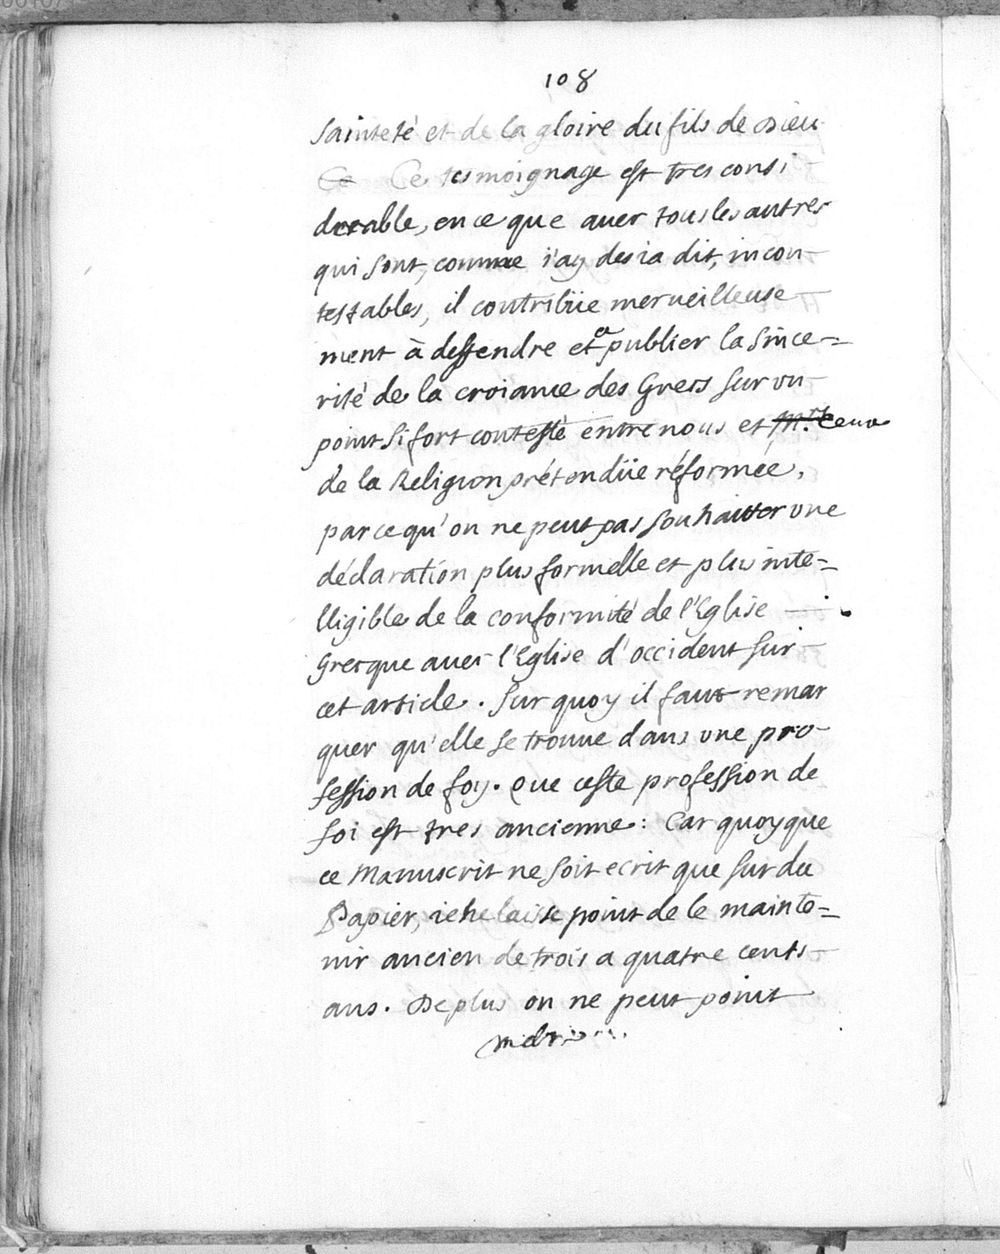 108
sainteté et de la gloire du fils de Dieu
Ce Ce tesmoignage est tres consi
derable, en ce que auec tous les autres
qui sont, comme i'ay desia dit, incon-
testables, il contribüe merueilleuse-
ment à deffendre et a publier la since=
rité de la croiance des Grecs sur un
point si fort contesté entre nous et ceux
de la Religion prétendüe réformée,
parce qu'on ne peut pas souhaitter une
déclaration plus formelle et plus inte=
lligible de la conformité de l'Eglise
Grecque auec l'Eglise d'occident sur
cet article. Sur quoy il faut remar
quer qu'elle se trouue dans une pro-
fession de foy. Que ceste profession de
foi est tres ancienne: Car quoyque
ce Manuscrit ne soit ecrit que sur du
Papier, ie ne laisse point de le mainte=
nir ancien de trois a quatre cents
ans. De plus on ne peut point